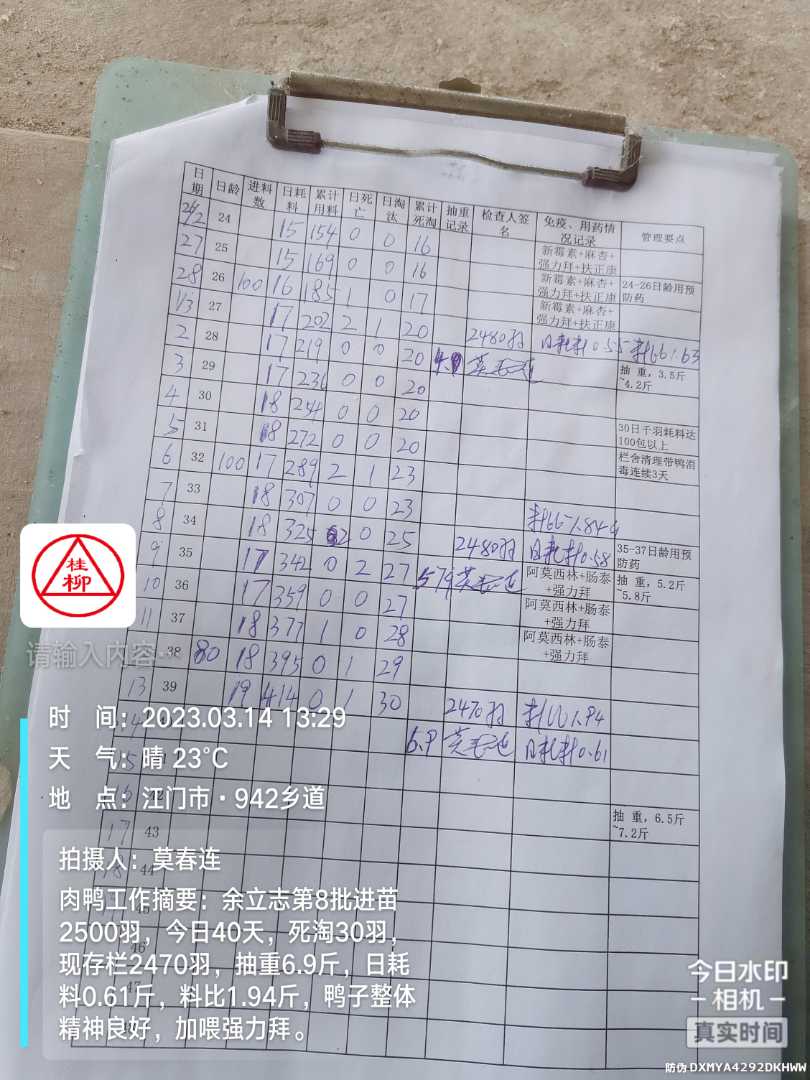 日期 日龄 进料数 日耗料 累计用料 日死亡 日淘汰 累计死淘 抽重记录 检查人签名 免疫、用药情况记录 管理要点
26/2 24 15 154 0 0 16
27 25 15 169 0 0 16 新霉素+麻杏+强力拜+扶正康
28 26 100 16 185 1 0 17 新霉素+麻杏+强力拜+扶正康 24-26日龄用预防药
1/3 27 17 202 2 1 20 新霉素+麻杏+强力拜+扶正康
2 28 17 219 0 0 20 2480羽 日耗料0.55 料比1.63
3 29 17 236 0 0 20 4.9 莫春连 抽重，3.5斤~4.2斤
4 30 18 254 0 0 20
5 31 18 272 0 0 20 30日千羽耗料达100包以上
6 32 100 17 289 2 1 23 栏舍清理带鸭消毒连续3天
7 33 18 307 0 0 23
8 34 18 325 2 0 25 料比1.84
9 35 17 342 0 2 27 2480羽 日耗料0.58 35-37日龄用预防药
10 36 17 359 0 0 27 5.79 莫春连 阿莫西林+肠泰+强力拜 抽重，5.2斤~5.8斤
11 37 18 377 1 0 28 阿莫西林+肠泰+强力拜
38 80 18 395 0 1 29 阿莫西林+肠泰+强力拜
13 39 19 414 0 1 30
14 2470羽 料比1.94
15 6.9 莫春连 日耗料0.61
16
17 43 抽重，6.5斤~7.2斤
18 44
45
46
47
桂柳
请输入内容…
时 间：2023.03.14 13:29
天 气：晴 23℃
地 点：江门市·942乡道
拍摄人：莫春连
肉鸭工作摘要：余立志第8批进苗
2500羽，今日40天，死淘30羽，
现存栏2470羽，抽重6.9斤，日耗
料0.61斤，料比1.94斤，鸭子整体
精神良好，加喂强力拜。
今日水印
相机
真实时间
防伪 DXMYA4292DKHWW